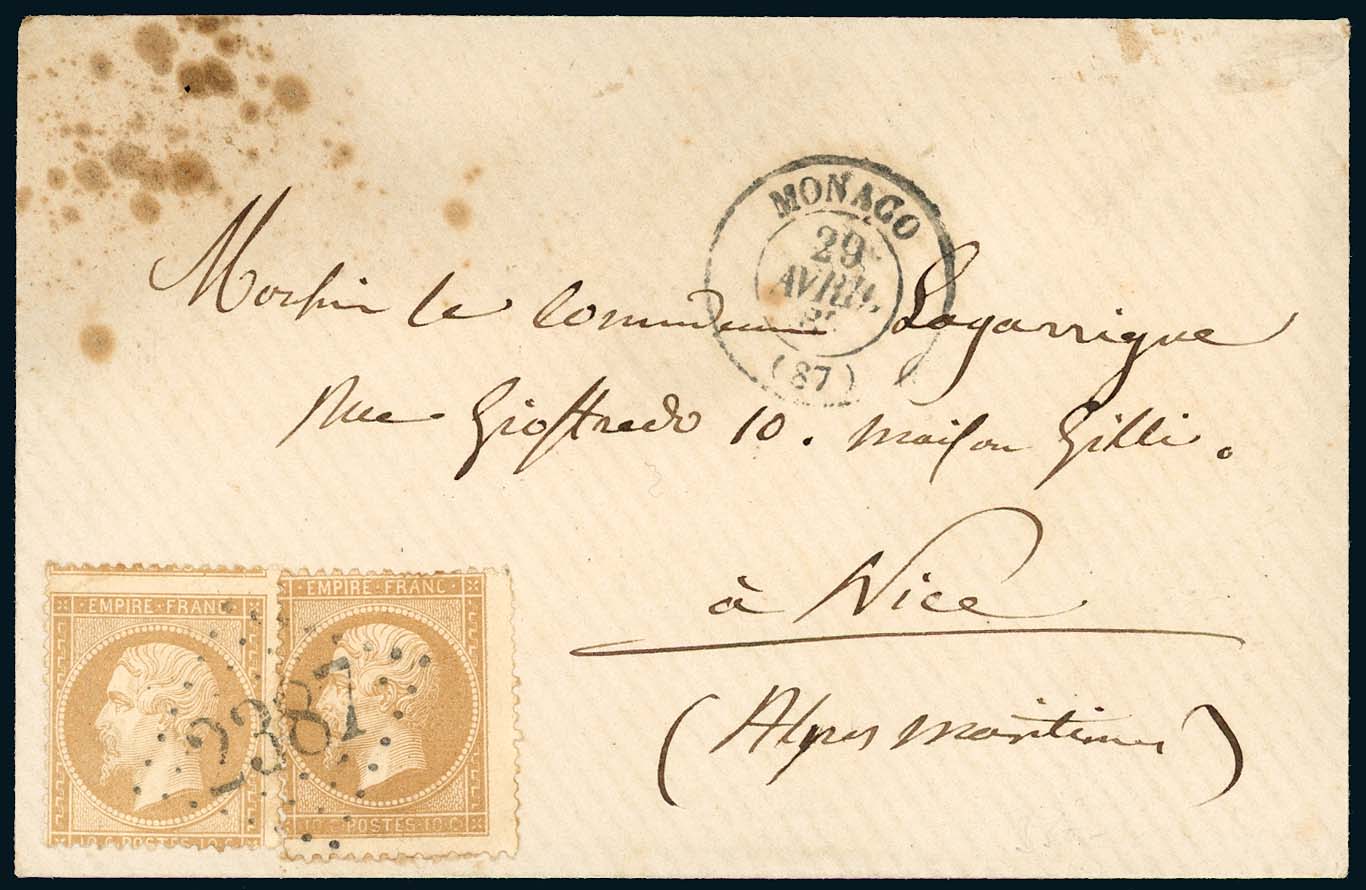 MONACO
29
AVRIL
(87)
le Lagarrigue
Rue Gioffredo 10. maison Gilli.
à Nice
(Alpes maritimes)
EMPIRE FRANC
10 C POSTES 10 C
EMPIRE FRANC
10 C POSTES 10 C
2387